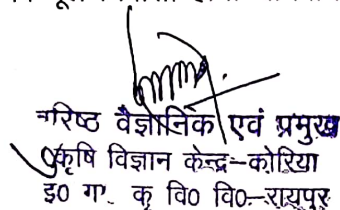 वरिष्ठ वैज्ञानिक एवं प्रमुख
कृषि विज्ञान केन्द्र-कोरिया
इ0 गा. कृ वि0 वि0-रायपुर